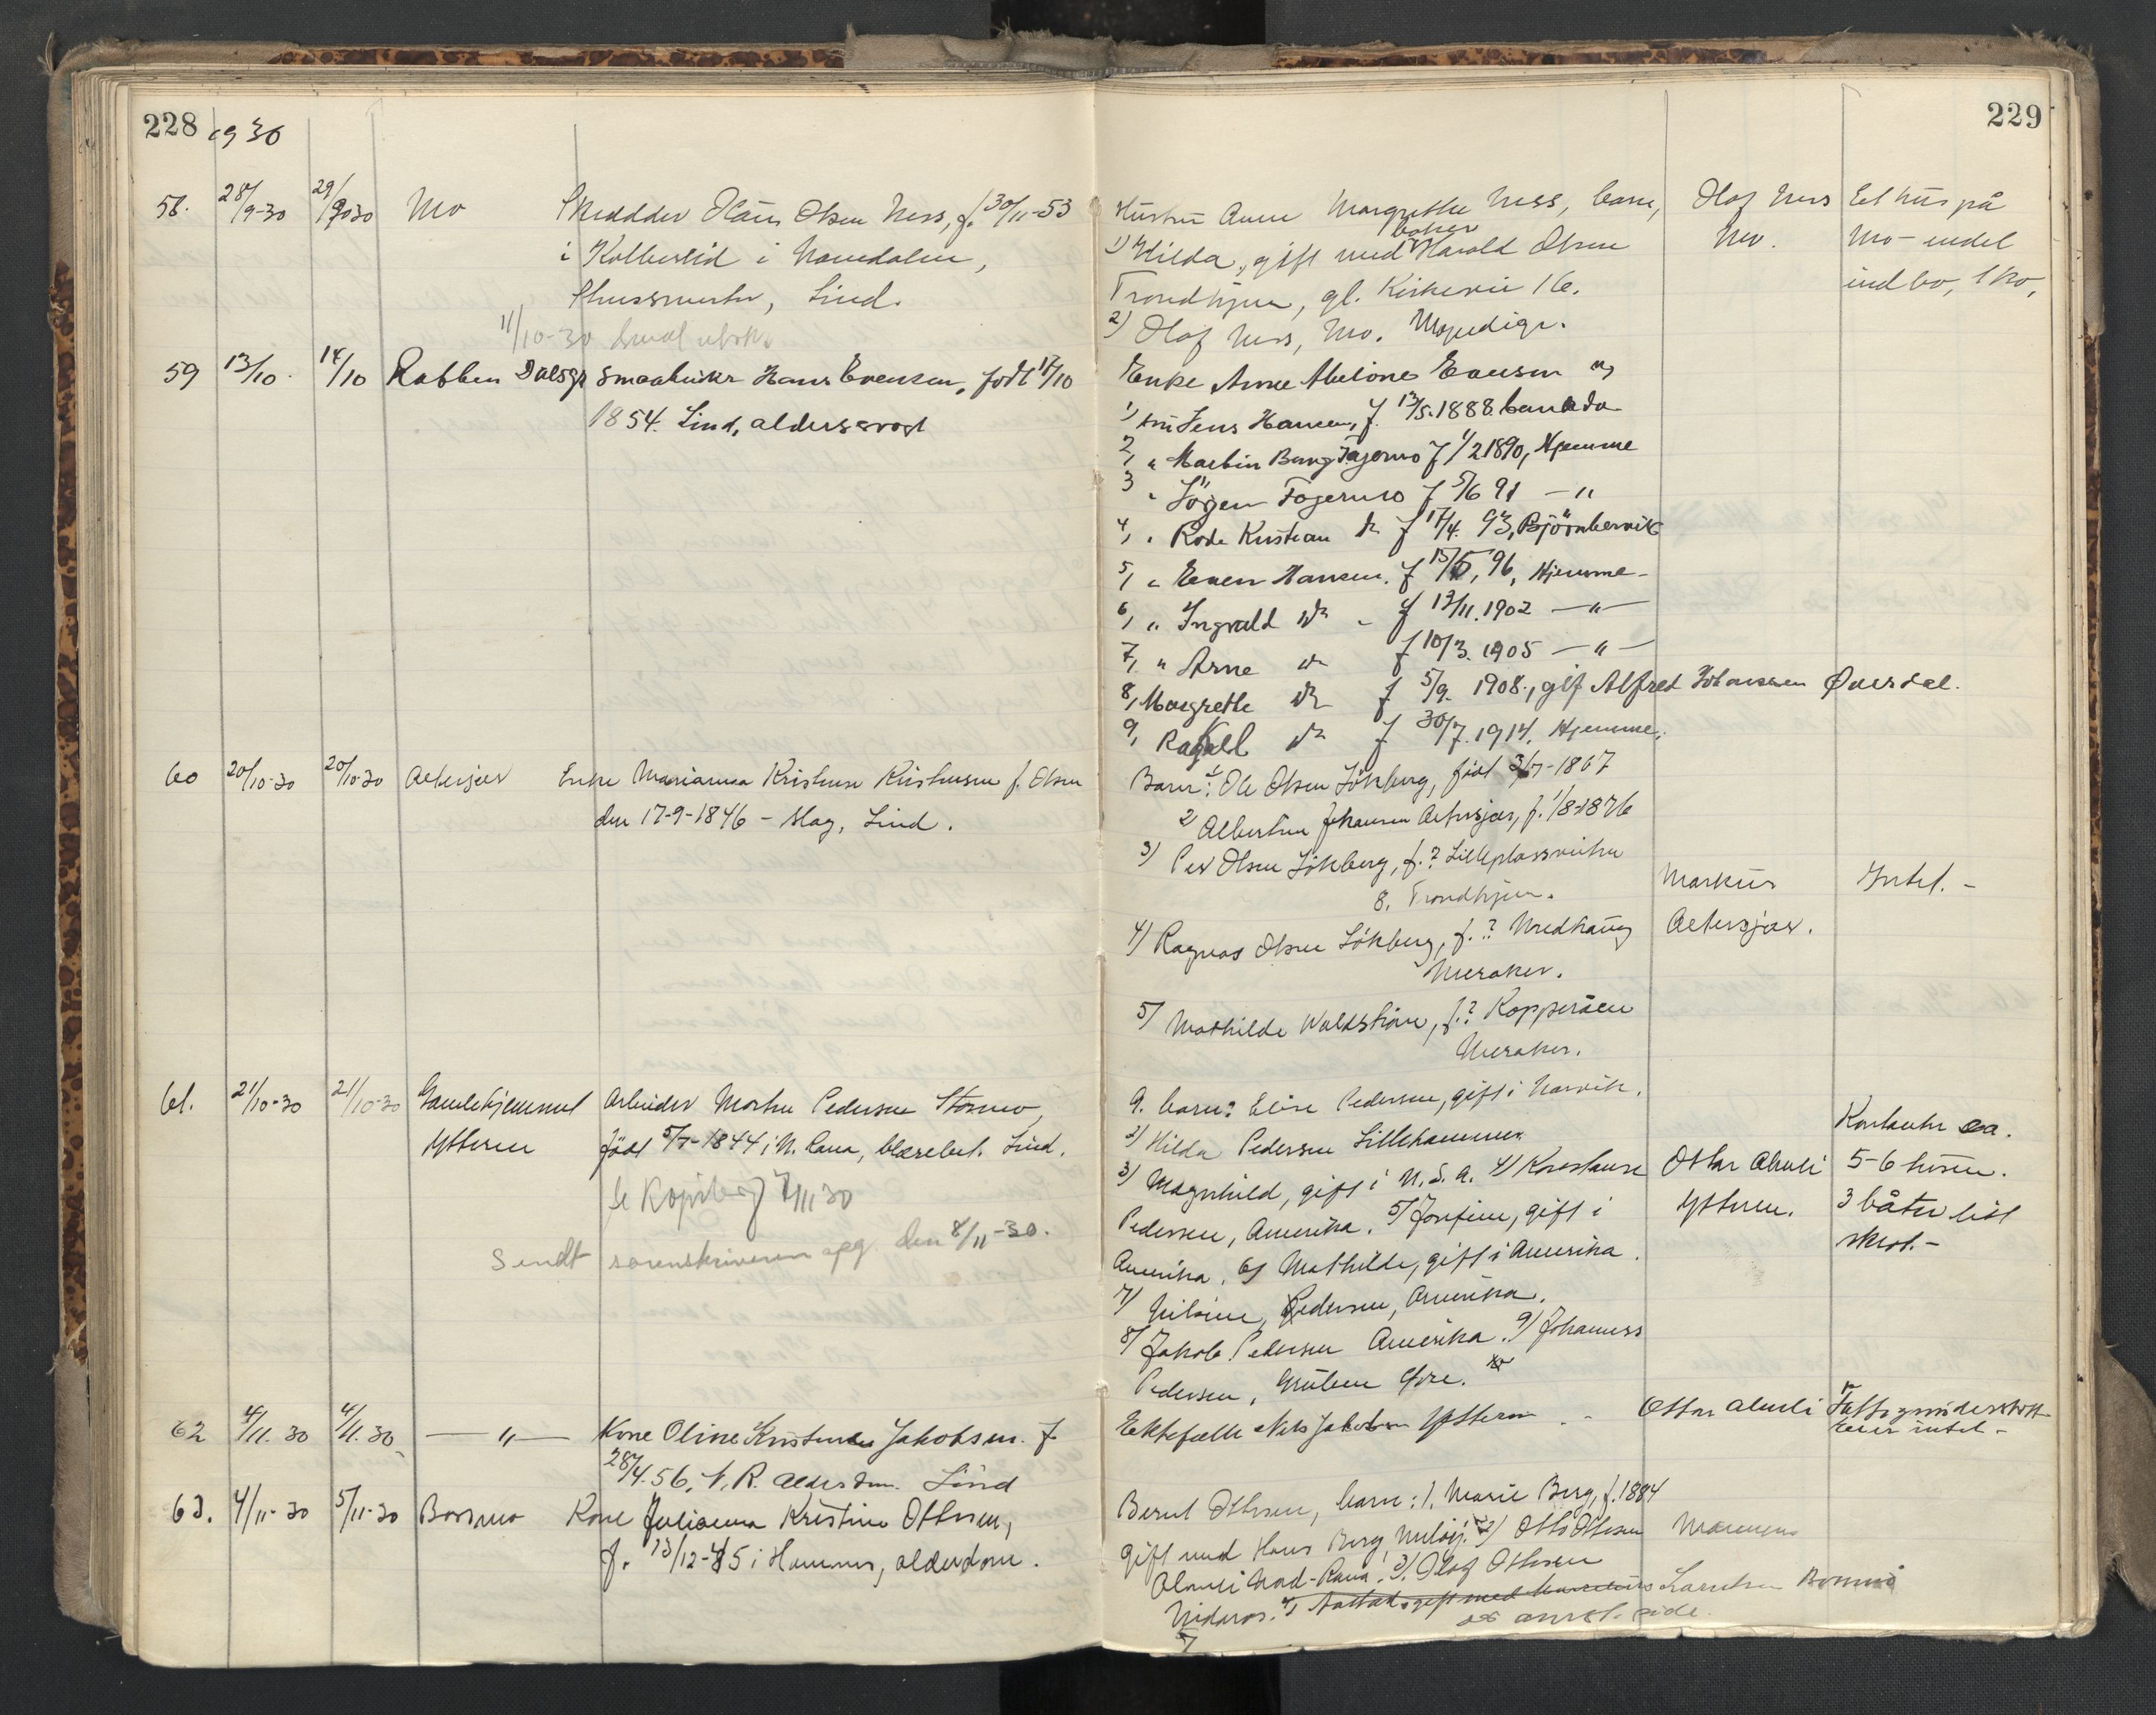 228 1930
58. 28/9-30 29/9-30 Mo Skredder Hans Olsen Ness, f. 30/11-53
i Kolberlid i Namdalen,
Lind.
11/10-30
59 13/10. 14/10 Rabben Dalsgr Smaabruker Hans Evensen, født 17/10
1854. Lind, alderssvagt
60 20/10-30 20/10-30 Altersjør Enke Marianna Kristense Kristensen f. Olsen
den 17-9-1846 - Slag, Lind.
61. 21/10-30 21/10-30 Gamlehjemmet Arbeider Morten Pedersen Stormo,
Ytteren født 5/7-1844 i N. Rana, blærebet. Lind.
11/30
Sendt sorenskriveren opg. den 8/11-30.
62 4/11.30 4/11.30 — " — Kone Oline Kristense Jakobsen. f.
28/4.56, N. R. Alderdom. Lind
63. 4/11-30 5/11-30 Bossmo Kone Julianna Kristine Ottesen,
f. 13/12-45 i Hemnes, alderdom.
229
Hustru Anne Margrethe Ness, barn, Olaf Ness Et hus på
1) Hilda, gift med baker Harald Olsen Mo. Mo - endel
Trondhjem, gl. Kirkevei 16. indbo, 1 ko,
2) Olaf Ness, Mo. Myndige.
Enke Anne Abelone Evensen og
1) Jens Hansen, f. 13/5.1888. Canada
2, " Martin Bang Fagermo f 1/2 1890, Hjemme
3 " Jörgen Fagermo f 5/6 91 — "
4, " Kristian do f 17/4. 93, Björnbervik
5, " Even Hansen. f 15/5, 96, Hjemme -
6, " Ingvald do - f 13/11.1902 — " —
7, " Arne do f 10/3. 1905 — " —
8, Margrethe do f 5/9. 1908., gift Alfred Johanssen Øverdal.
9, Ragnhil do f 30/7.1914. Hjemme.
Barn: 1 Ole Olsen Lökberg, født 3/7-1867
2 Albertine Johansen Altersjør, f. 1/8-1876
3) Per Olsen Lökberg, f. ? Lilleplassveien
8, Trondhjem. Markus Intet. -
4) Ragnas Olsen Lökberg, f. ? Nedhaug Altersjør.
Meraker.
5) Mathilde Waldström, f. ? Kopperåen
Meraker.
9. barn: Elise Pedersen, gift i Narvik.
2) Hilda Pedersen Lillehammer. Kontanter ca.
3) Magnhild, gift i U.S.A. 4) Konstanse Ottar Alneli 5-6 hundre.
Pedersen, Amerika. 5) Josefine, gift i Ytteren. 3 båter litt
Amerika. 6) Mathilde, gift i Amerika. skrot. -
7) Nilsine, Pedersen, Amerika.
8) Jakob Pedersen Amerika. 9) Johannes
Pedersen, Gruben Yttre.
Ektefælle Nils Jakobsen Ytteren - Ottar Alneli Fattigunderstøtt
Eier intet -
Bernt Ottesen, barn: 1. Marie Berg, f. 1884
gift med Hans Berg, 2) Otto Ottesen Mannen
Alneli Nord-Rana. 3). Olaf Ottesen
Nidaros. 4) gift med Larntsen Bossmo
se omst. side.
5)